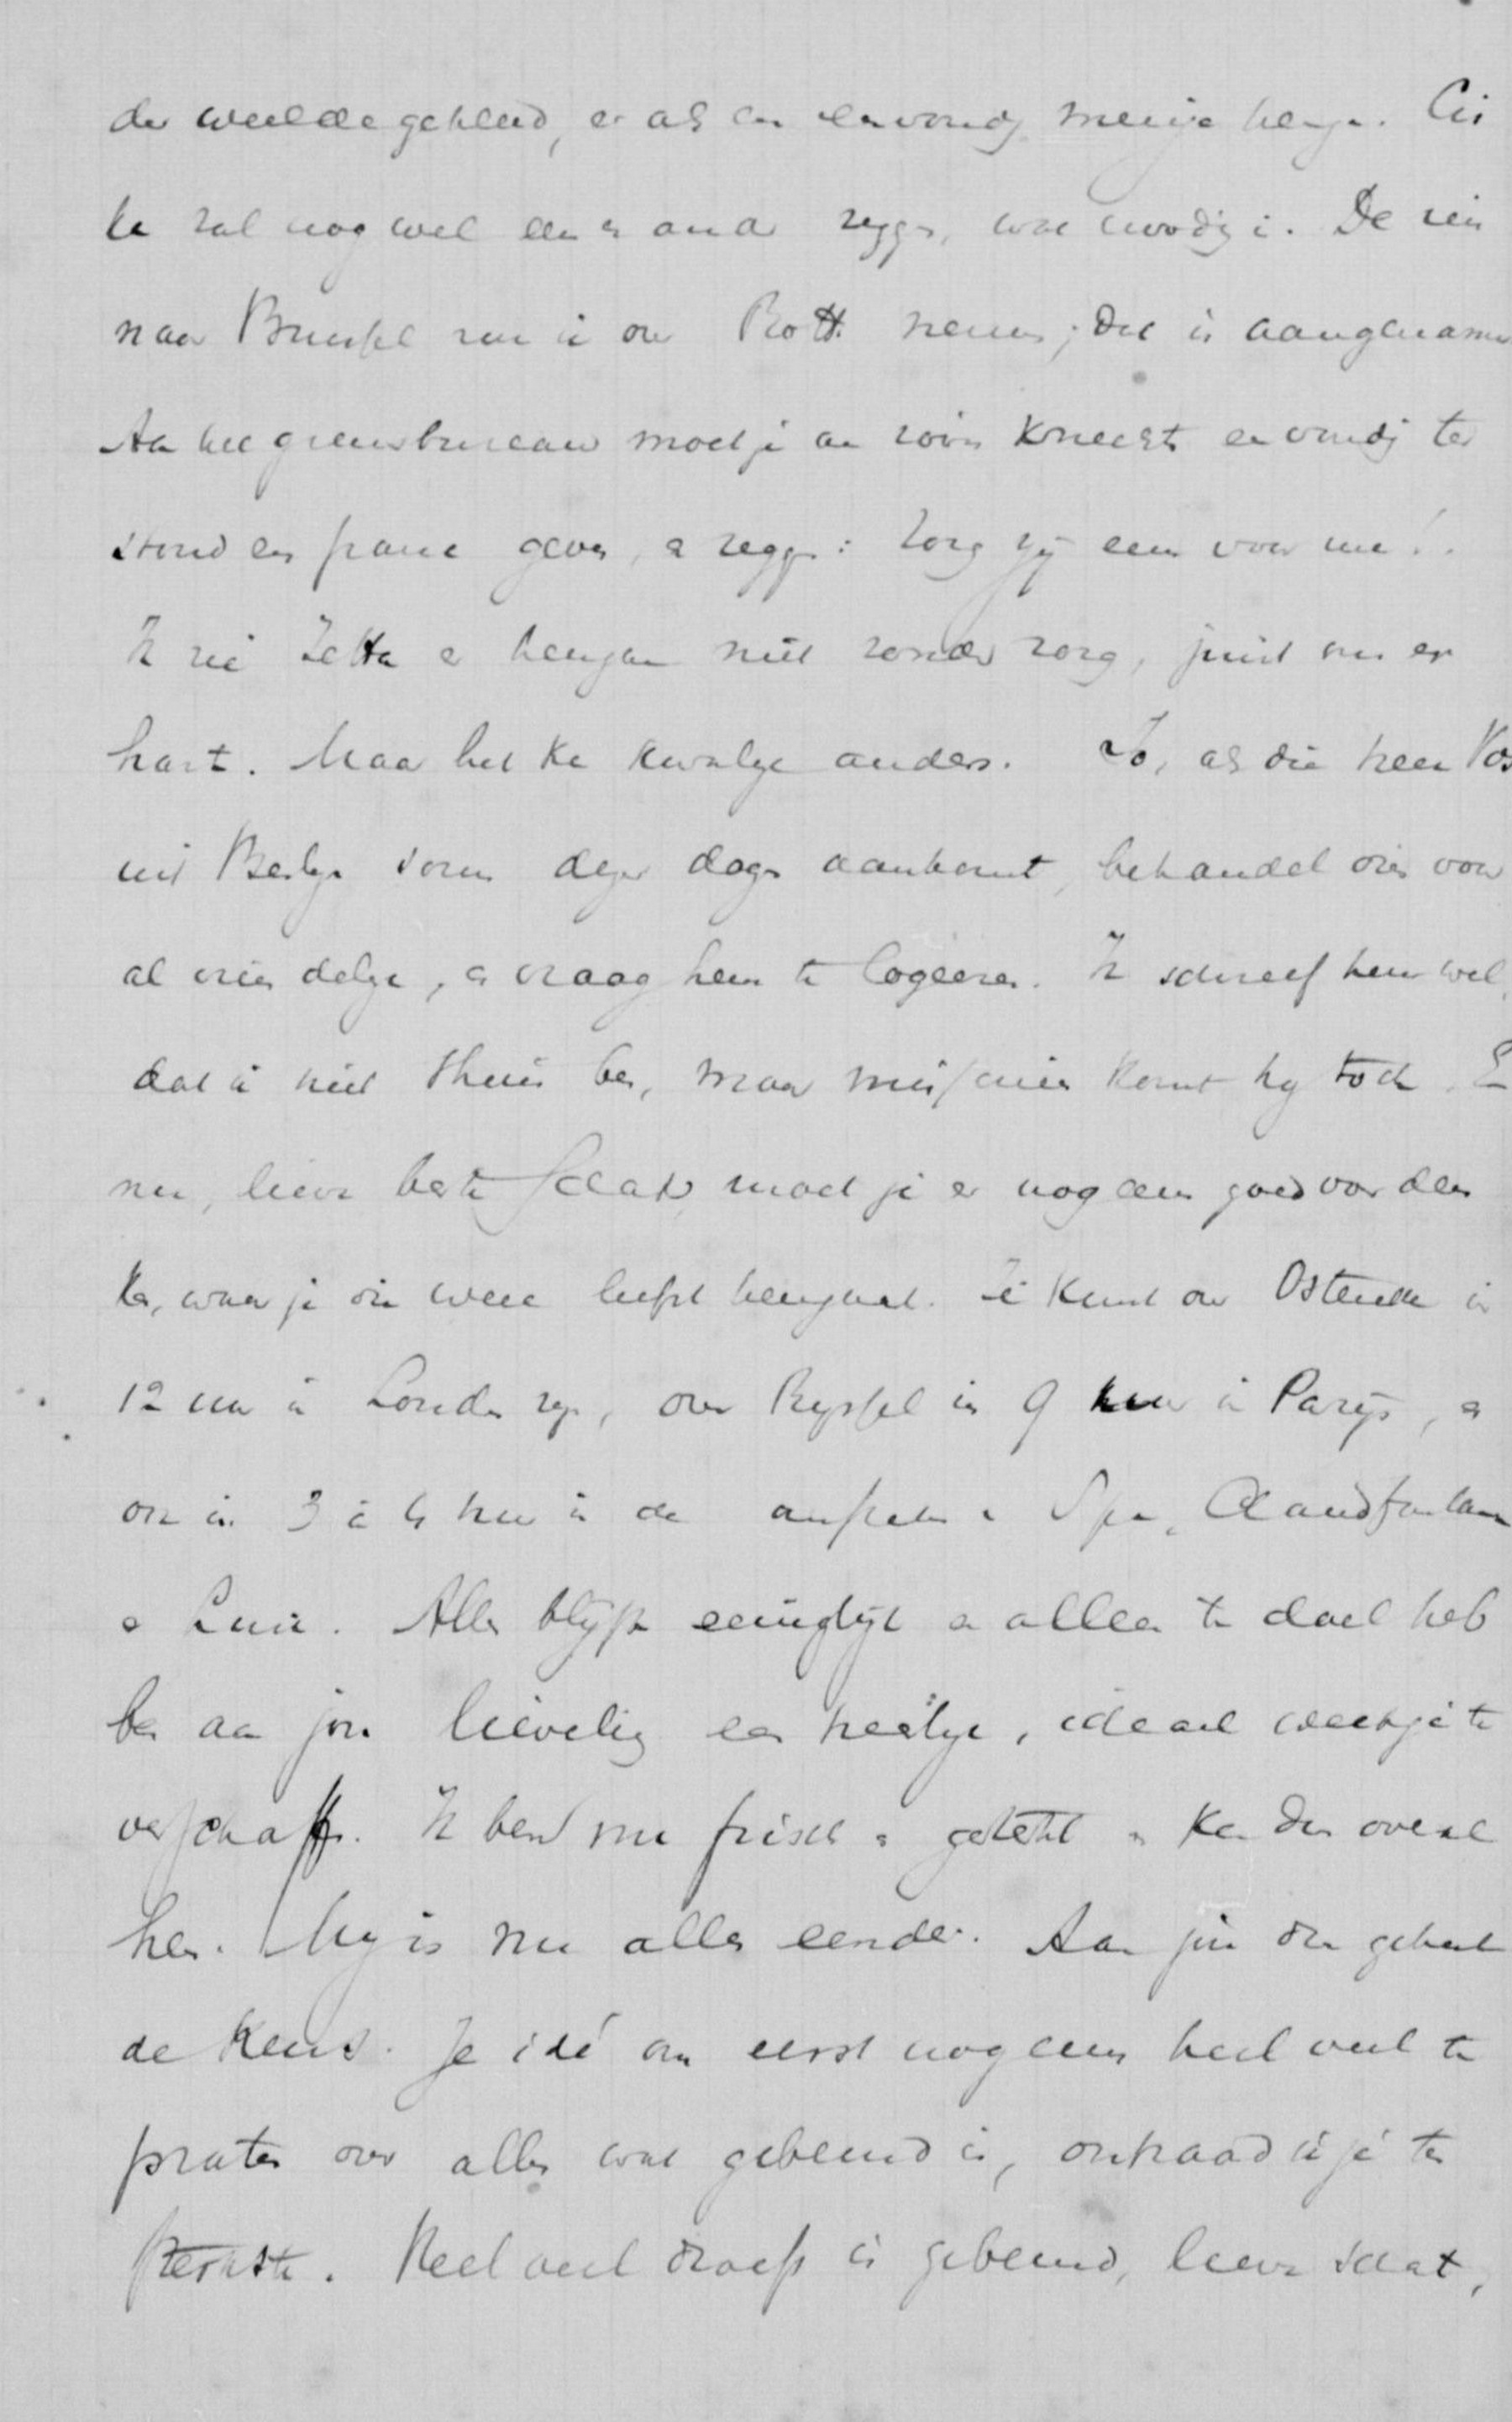 der weelde gekleed, er als een eenvoudig meisje Cis
ka zal nog wel een en ander zeggen, wat noodig is. De reis
naar Brussel zou ik over Rott. nemen; dat is aangenamer
Aan het grensbureau moet je aan zoo'n knecht eenvoudig ter
stond een franc geven, en zeggen: zorg jij eens voor me!
Ik zie Jetta er heengaan niet zonder zorg, juist om er
hart. Maar het kan kwalyk anders. Jo, als die heer Vos
uit Berlyn soms dezer dagen aankomt, behandel dien voor
al vriendelyk, en vraag hem te logeeren. Ik schreef hem wel,
dat ik niet thuis ben, maar misschien komt hy toch. En
nu, lieve beste schat, moet je er nog eens goed voor den
ken, waar je die week liefst heengaat. Je kunt over Ostende in
12 uur in Londen zyn, over Ryssel in 9 uur in Parijs, en
ook in 3 à 4 uur in de Spa, Chaudfontaine
en Luik. Alles blyft eeuwiglijk en alleen te doel heb
ben aan jou lieveling een heerlyk, ideaal weekje te
verschaffen. Ik ben nu frisch en gesterkt en kan dus overal
heen. My is nu alles eender. Aan jou dus geheel
de keus. Je idé om eerst nog eens heel veel te
praten over alles wat gebeurd is, ontraad ik je ten
sterkste. Heel veel droefs is gebeurd, lieve schat,